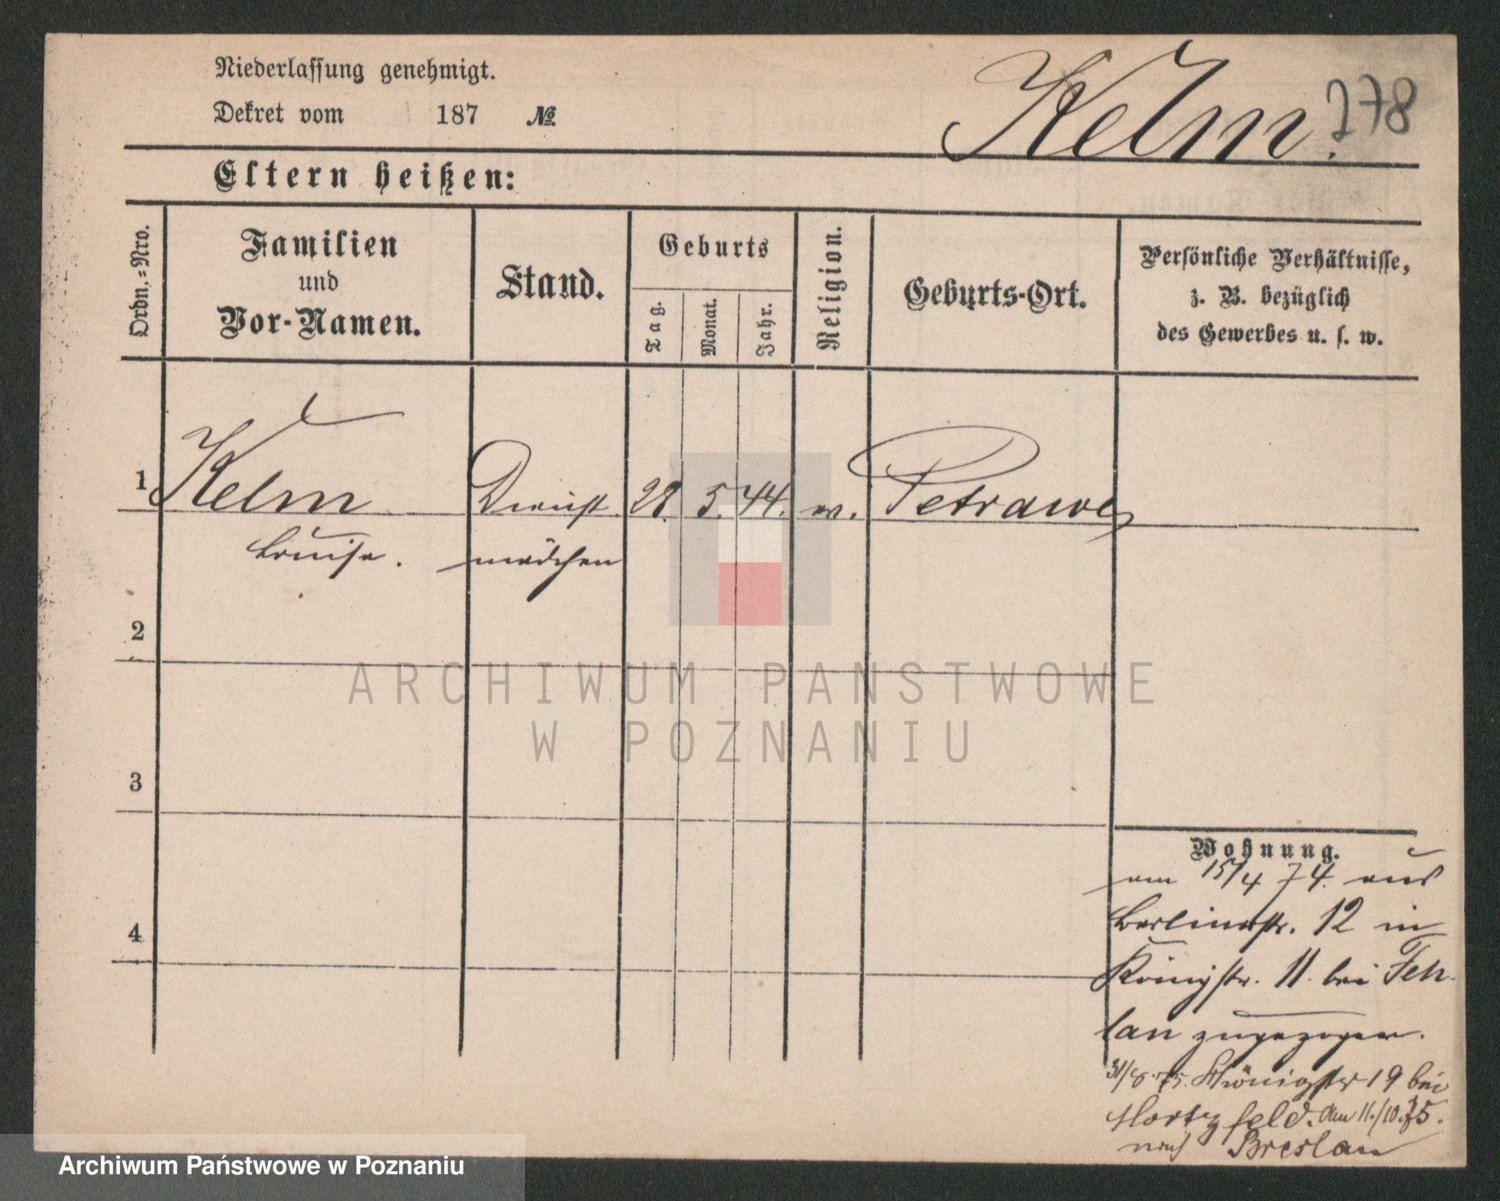 Niederlassung genehmigt.
Dekret vom 187 №
Kelm. 278
Eltern heißen:
Ordn.-Nro.
Familien
und
Vor-Namen.
Stand.
Geburts
Tag.
Monat.
Jahr.
Religion.
Geburts-Ort.
Persönliche Verhältnisse,
z. B. bezüglich
des Gewerbes u. s. w.
1 Kelm Dienst 28. 5. 44. ev. Petrawe
Louise. mädchen
2
3
4
Wohnung.
am 15/4 74. aus
Berlinerstr. 12 in
Königstr. 11. bei Feh-
lan zugezogen.
31/8.75. Königstr 19 bei
feld. den 11./10.75.
nach Breslau
ARCHIWUM PAŃSTWOWE
W POZNANIU
Archiwum Państwowe w Poznaniu